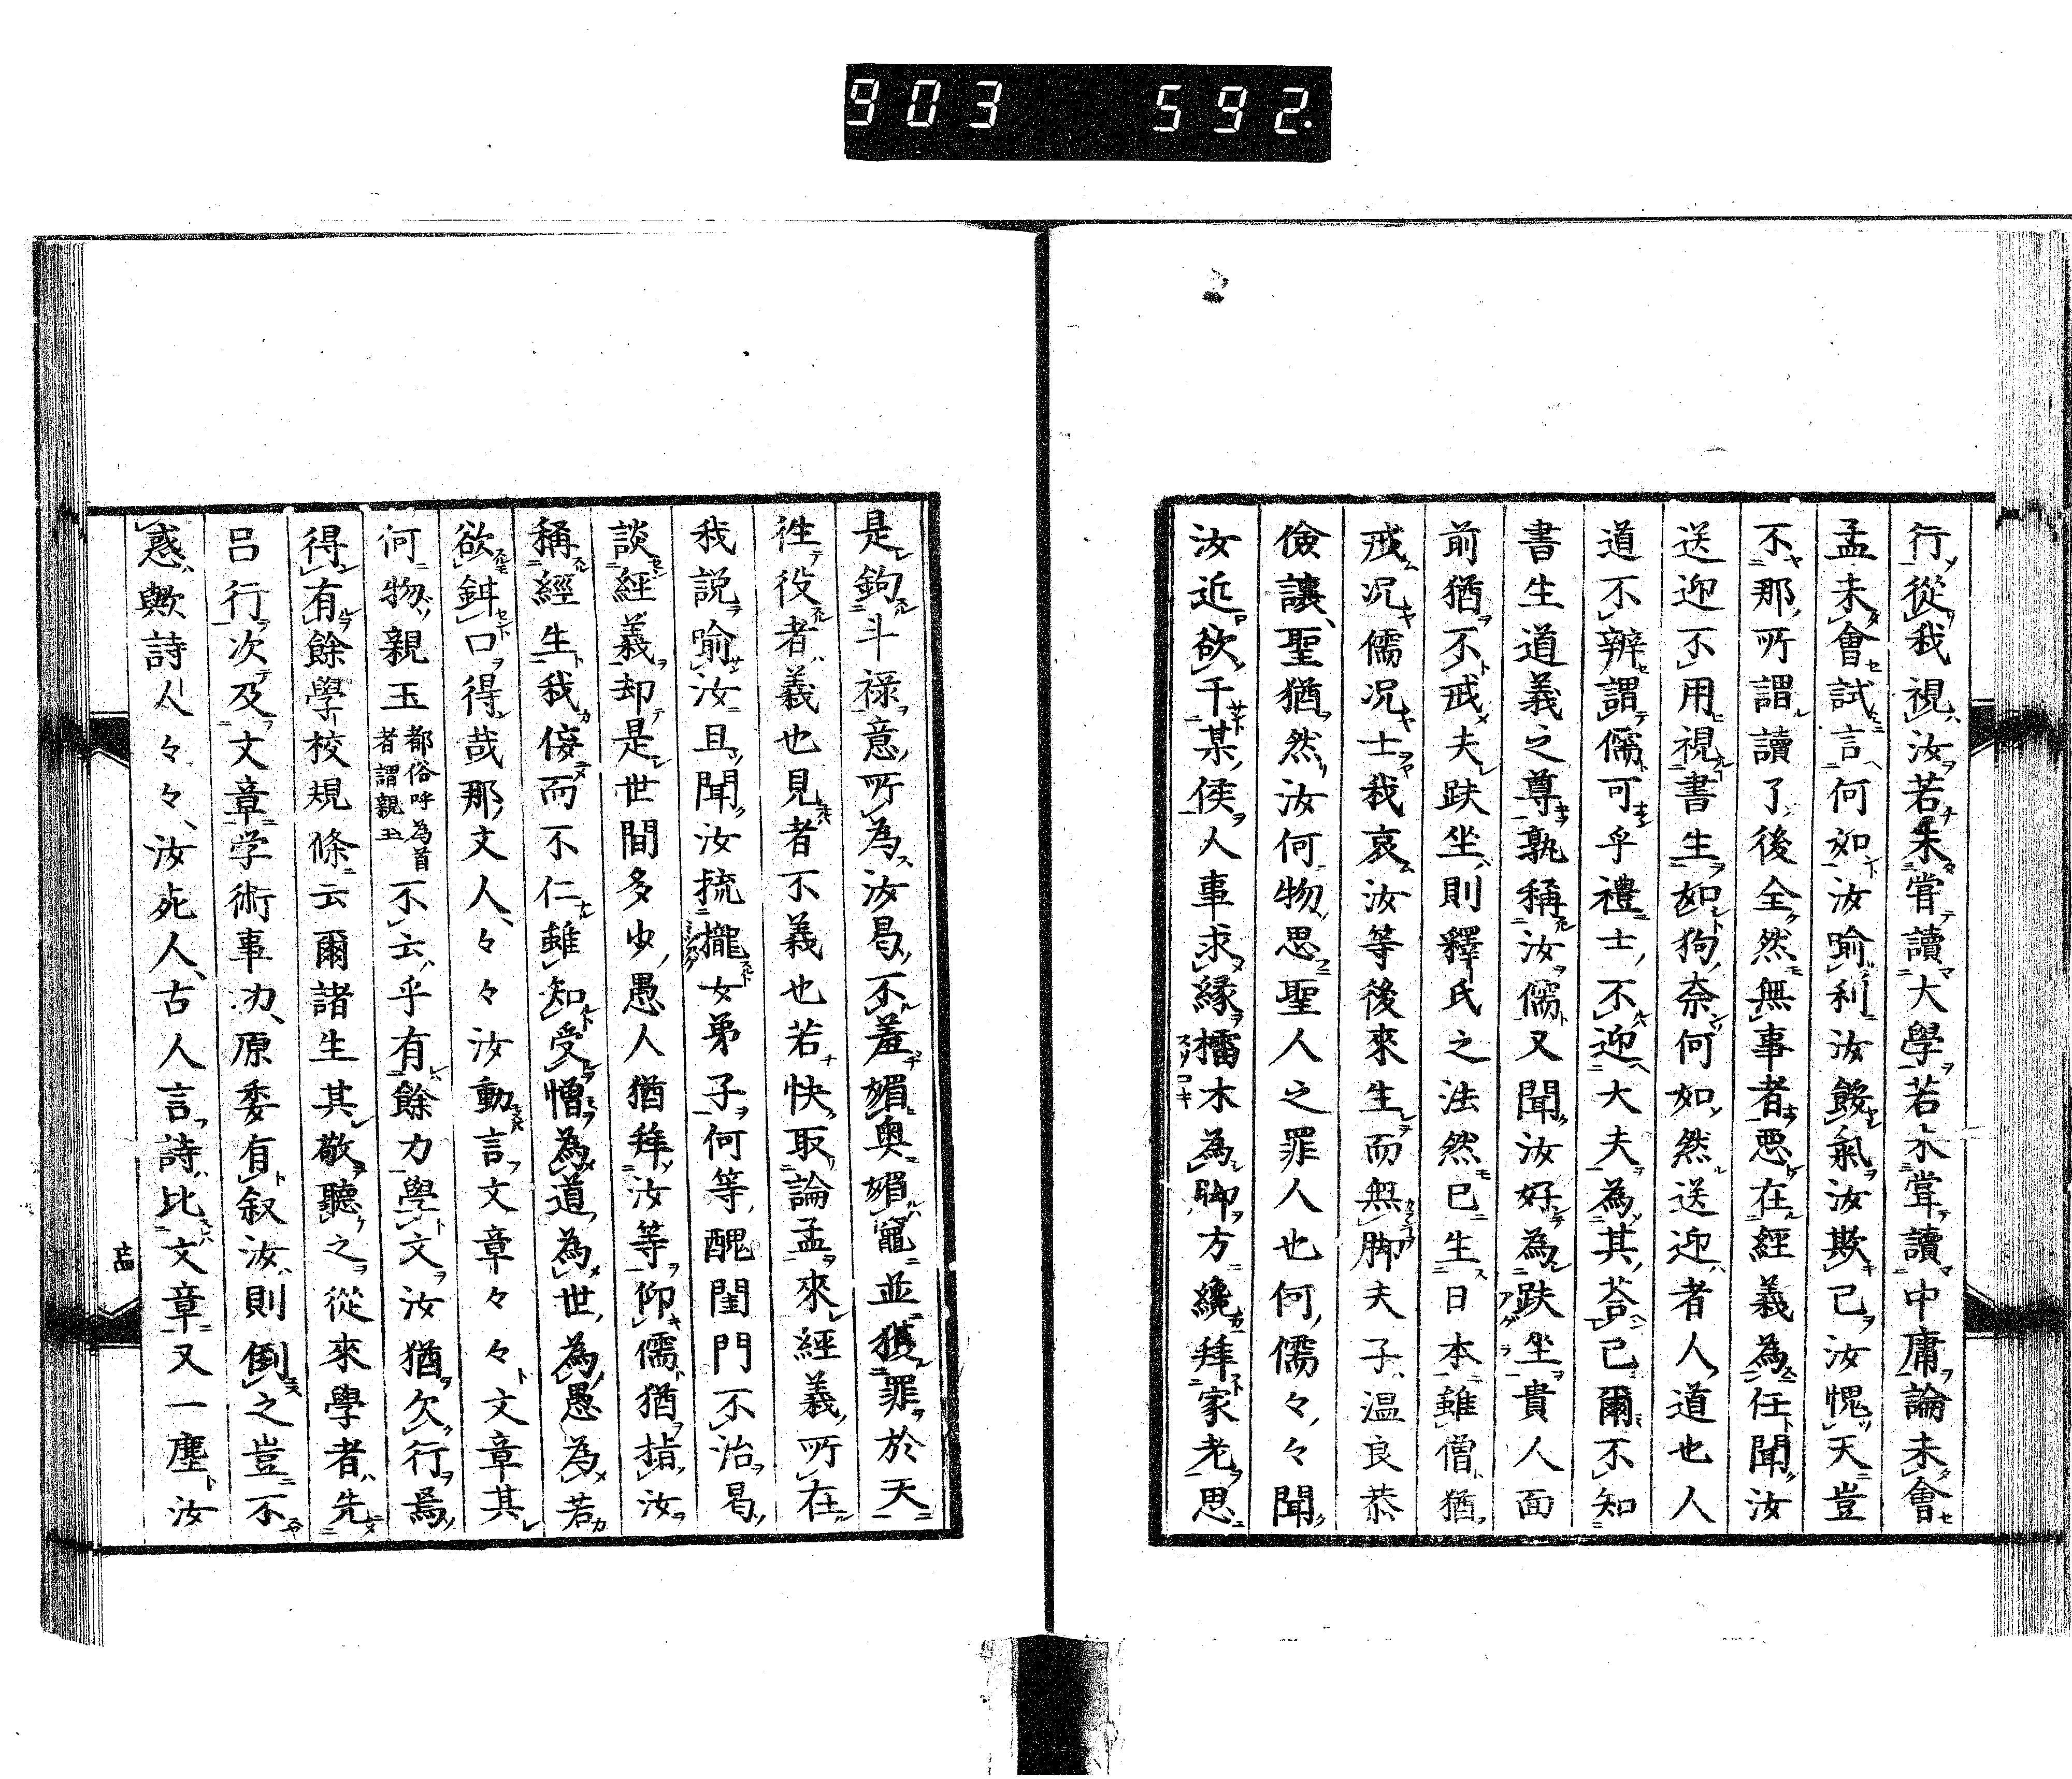 903 592.
行從我視汝若未嘗讀大學若未嘗讀中庸論未會
孟未會試言何如汝喻利汝餒氣汝欺己汝愧天豈
不那所謂讀了後全然無事者惡在經義為任聞汝
送迎不用視書生如狗奈何如然送迎者人道也人
道不辨謂儒可乎禮士不迎大夫為其荅己爾不知
書生道義之尊孰稱汝儒又聞汝好為趺坐貴人面
前猶不戒夫趺坐則釋氏之法然已生日本雖僧猶
戒况儒况士我哀汝等後來生而無脚夫子温良恭
儉讓聖猶然汝何物思聖人之罪人也何儒々々聞
汝近欲干某侯人事求縁擂木為脚方纔拜家老思
是鉤斗禄意所為汝曷不羞媚奥媚竈並獲罪於天
徃役者義也見者不義也若快取論孟來經義所在
我説喻汝且聞汝梳攏女弟子何等醜閨門不治曷
談經義却是世間多少愚人猶拜汝等仰儒猶指汝
稱經生我倿而不仁雖知受憎為道為世為愚為若
欲鉗口得哉那文人々々汝動言文章々々文章其
何物親玉都俗呼為首者謂親玉不云乎有餘力學文汝猶欠行焉
得有餘學校規條云爾諸生其敬聽之從來學者先
吕行次及文章学術事功原委有叙汝則倒之豈不
惑歟詩人々々汝死人古人言詩比文章又一塵汝